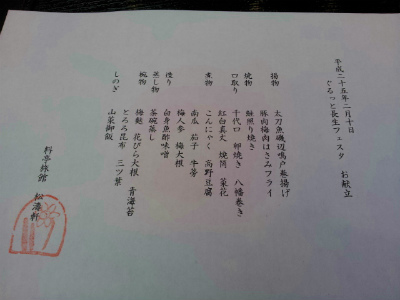 平成二十五年二月十日
ぐるっと長生フェスタ　お献立
揚物
太刀魚磯辺鳴戸巻揚げ
豚肉梅肉はさみフライ
焼物
鮭照り焼き
口取り
千代口　卵焼き　八幡巻き
紅白真丈　焼筒　菜花
煮物
こんにゃく　高野豆腐
南瓜　茄子　牛蒡
梅人参　梅大根
後り
白身魚酢味噌
蒸し物
茶碗蒸し
椀物
梅麩　花びら大根　青海苔
とろろ昆布　三ツ葉
しのぎ
山菜御飯
料亭旅館　松濤軒